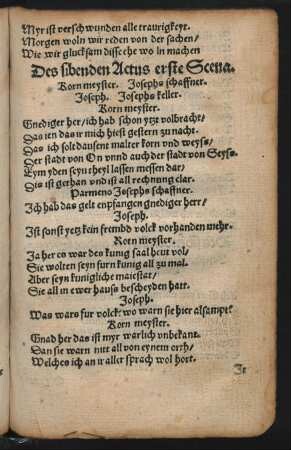 Myr ist verschwunden alle traurigkeyt.
Morgen woln wir reden von der sachen/
Wie wir glucksam disse ehe wo ln machen
Des sibenden Actus erste Scena.
Korn meyster. Josephs schaffner.
Joseph. Josephs keller.
Korn meyster.
Gnediger her/ich hab schon ytzt volbracht/
Das ien das ir mich hiest gestern zu nacht.
Das ich solt dausent malter korn vnd weyss/
Der stadt von On vnnd auch der stadt von Seyss.
Eym yden seyn theyl lassen messen dar/
Dis ist gethan vnd ist all rechnung clar.
Parmeno Josephs schaffner.
Ich hab das gelt enpfangen gnediger herr/
Joseph.
Ist sonst yetz kein frembd volck vorhanden mehr.
Korn meyster.
Ja her es war des kunig saal heut vol/
Sie wolten seyn furn kunig all zu mal.
Aber seyn kunigliche maiestat/
Sie all in ewer hauss bescheyden hatt.
Joseph.
Was wars fur volck? wo warn sie hier alsampt?
Korn meyster.
Gnad her das ist myr warlich vnbekant.
Dan sie warn nitt all von eynem orth/
Welches ich an ir aller sprach wol hort.
Je